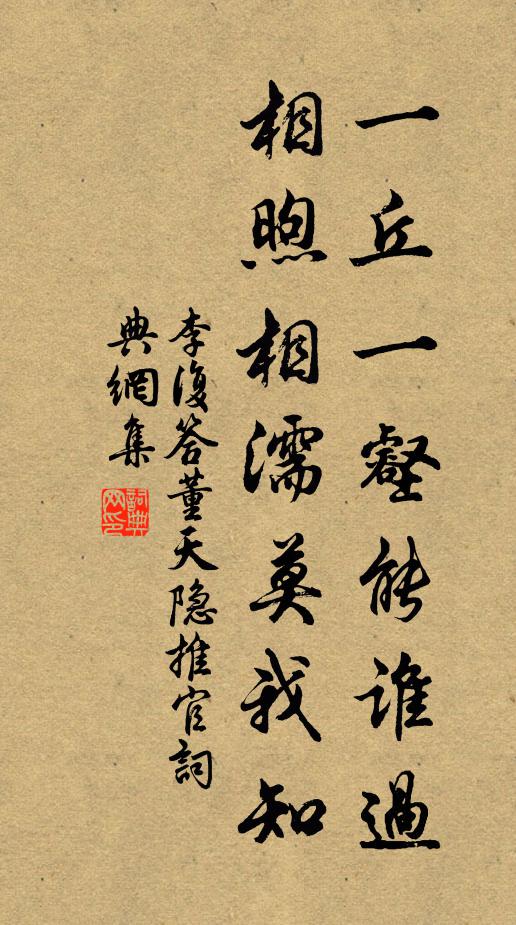 一丘一壑能誰過
相煦相濡莫我知
李復答董天隐推官詞
典網集
詞典网印